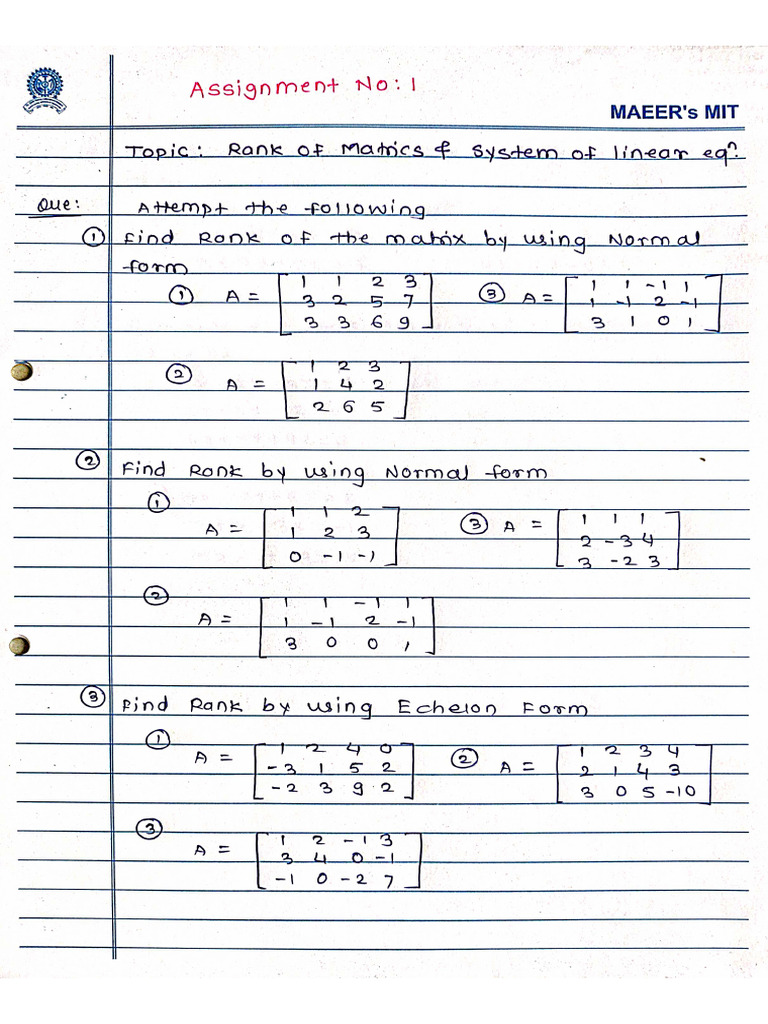 Assignment No: 1
MAEER's MIT
Topic: Rank of Matrics & System of linear eqⁿ.
Que: Attempt the following
① Find Rank of the matrix by using Normal
form
① A = [ 1 1 2 3
3 2 5 7
3 3 6 9 ]
③ A = [ 1 1 -1 1
1 -1 2 -1
3 1 0 1 ]
② A = [ 1 2 3
1 4 2
2 6 5 ]
② Find Rank by using Normal form
① A = [ 1 1 2
1 2 3
0 -1 -1 ]
③ A = [ 1 1 1
2 -3 4
3 -2 3 ]
② A = [ 1 1 -1 1
1 -1 2 -1
3 0 0 1 ]
③ Find Rank by using Echelon Form
① A = [ 1 2 4 0
-3 1 5 2
-2 3 9 2 ]
② A = [ 1 2 3 4
2 1 4 3
3 0 5 -10 ]
③ A = [ 1 2 -1 3
3 4 0 -1
-1 0 -2 7 ]